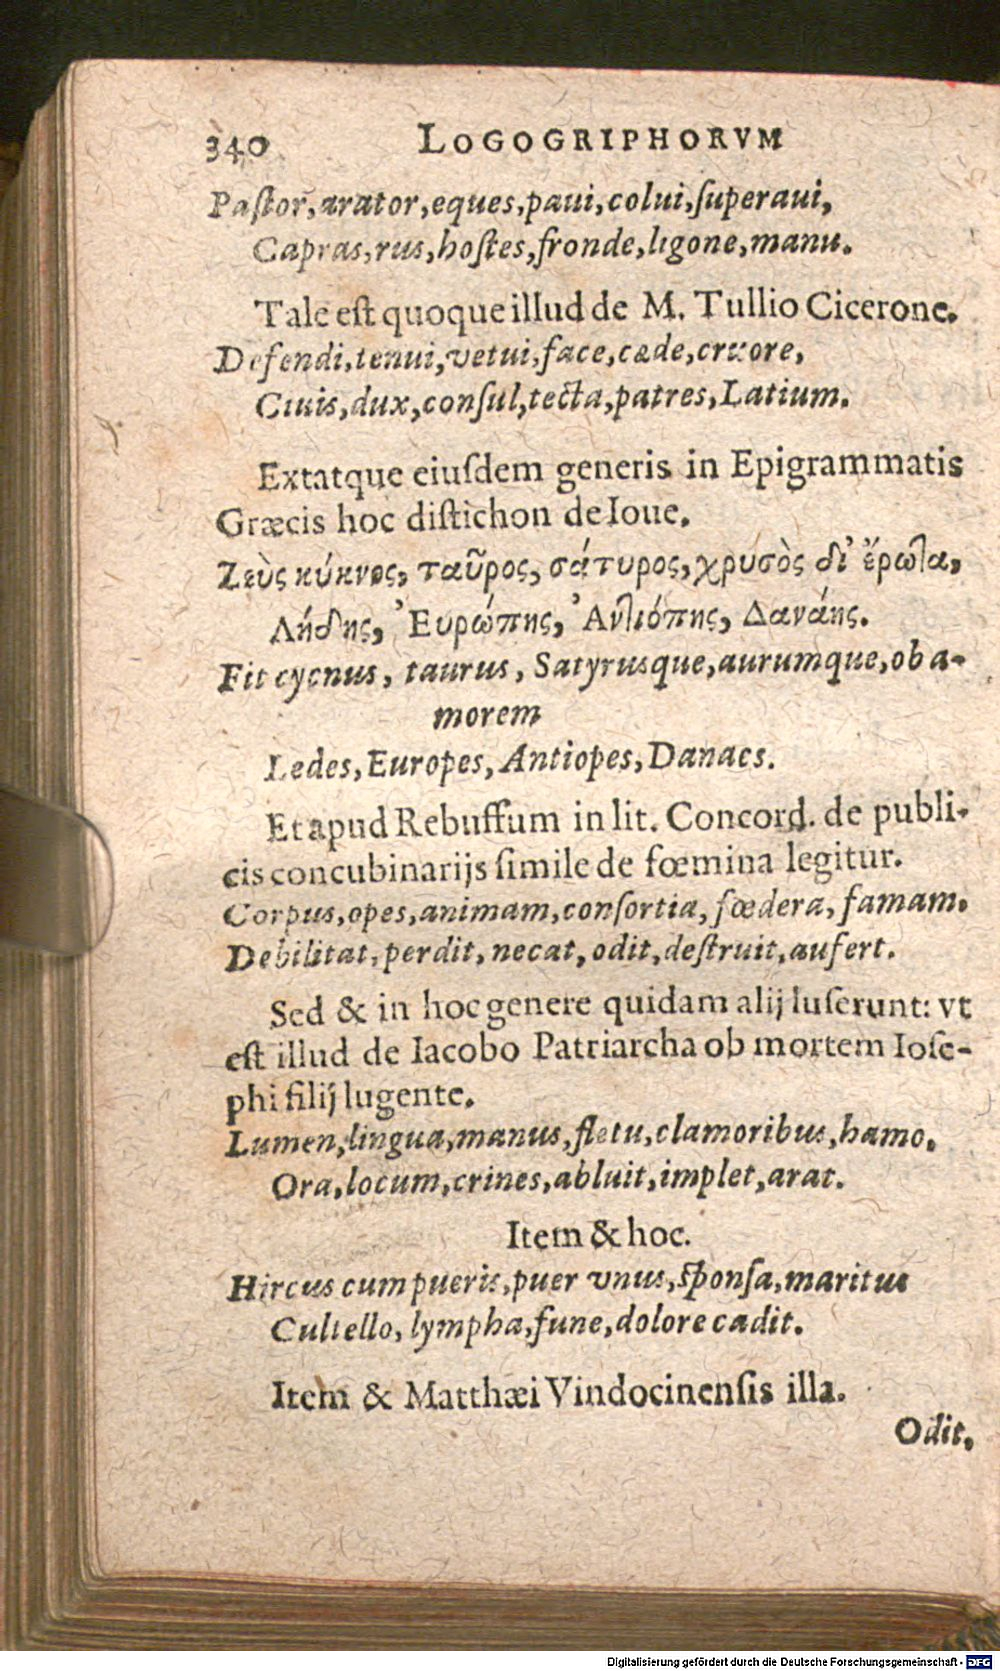 340 LOGOGRIPHORVM
Paſtor, arator, eques, paui, colui, ſuperaui,
Capras, rus, hoſtes, fronde, ligone, manu.
Tale eſt quoque illud de M. Tullio Cicerone.
Defendi, tenui, vetui, face, cæde, cruore,
Ciuis, dux, conſul, tecta, patres, Latium.
Extatque eiuſdem generis in Epigrammatis
Græcis hoc diſtichon de Ioue.
Ζεὺς κύκνος, ταῦρος, σάτυρος, χρυσὸς δι' ἔρωτα,
Λήδης, Ἐυρώπης, Ἀντιόπης, Δανάης.
Fit cycnus, taurus, Satyrusque, aurumque, ob a-
morem
Ledes, Europes, Antiopes, Danaes.
Et apud Rebuffum in lit. Concord. de publi-
cis concubinarijs ſimile de fœmina legitur.
Corpus, opes, animam, conſortia, fœdera, famam.
Debilitat, perdit, necat, odit, deſtruit, aufert.
Sed & in hoc genere quidam alij luſerunt: vt
eſt illud de Iacobo Patriarcha ob mortem Ioſe-
phi filij lugente.
Lumen, lingua, manus, fletu, clamoribus, hamo.
Ora, locum, crines, abluit, implet, arat.
Item & hoc.
Hircus cum pueris, puer vnus, ſponſa, maritus
Cultello, lympha, fune, dolore cadit.
Item & Matthæi Vindocinenſis illa.
Odit,
Digitalisierung gefördert durch die Deutsche Forschungsgemeinschaft - DFG